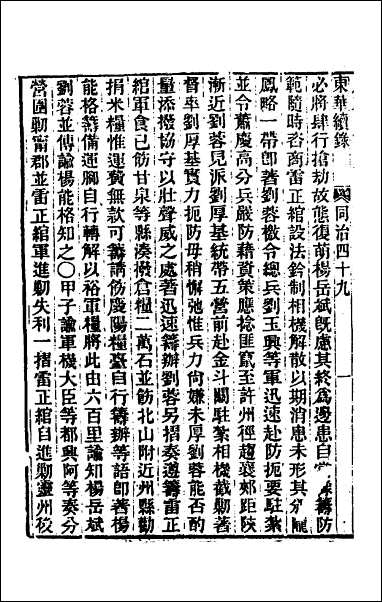 東華續錄　同治四十九
必將肆行搶劫故態復萌楊岳斌旣慮其終爲邊患自當 籌防
範隨時咨商雷正綰設法鈐制相機解散以期消患未形其分隴
鳳略一帶卽著劉蓉檄令總兵劉玉興等軍迅速赴防扼要駐紮
並令蕭慶高分兵嚴防藉資策應捻匪竄至許州徑趨襄郟距陝
漸近劉蓉見派劉厚基統帶五營前赴金斗關駐紮相機截勦著
督率劉厚基實力扼防毋稍懈弛惟兵力尙嫌未厚劉蓉能否酌
量添撥協守以壯聲威之處著迅速籌辦劉蓉另摺奏遵籌雷正
綰軍食已飭甘泉等縣湊撥倉糧二萬石並飭北山附近州縣勸
捐米糧惟運費無款可籌請飭慶陽糧臺自行籌辦等語卽著楊
能格籌備運腳自行轉解以裕軍糧將此由六百里諭知楊岳斌
劉蓉並傳諭楊能格知之〇甲子諭軍機大臣等都興阿等奏分
營圍勦甯郡並雷正綰軍進勦失利一摺雷正綰自進勦靈州後